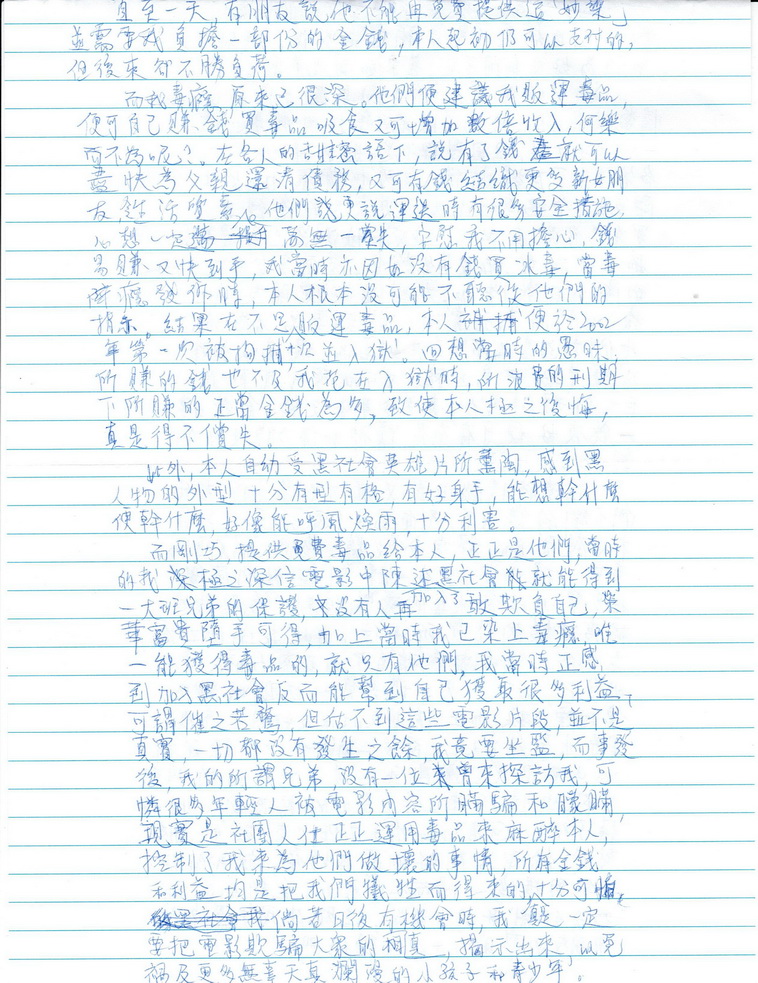 直至一天，有朋友說他不能再免費提供這「妙藥」
並需要我負擔一部份的金錢，本人起初仍可以支付的，
但後來卻不勝負荷。
而我毒癮原來已很深。他們便建議我販運毒品，
便可自己賺錢買毒品吸食又可增加數倍收入，何樂
而不為呢？。在各人的甜言蜜語下，說有了錢就可以
盡快為父親還清債務，又可有錢結織更多新女朋
友，生活質素。他們說更說運送時有很多安全措施，
心想一定萬無一失，安慰我不用擔心，錢
易賺又快到手，我當時亦因為沒有錢買冰毒，當毒
癮發作時，本人根本沒可能不聽從他們的
指示。結果在不足販運毒品，本人便於2002
年第一次被拘捕並入獄。回想當時的愚昧，
所賺的錢也不及我花在入獄時，所浪費的刑期
下所賺的正當金錢為多，致使本人極之後悔，
真是得不償失。
此外，本人自幼受黑社會英雄片所薰陶，感到黑
人物的外型十分有型有格，有好身手，能想幹什麼
便幹什麼，好像能呼風煥雨，十分利害。
而剛巧，提供免費毒品給本人，正正是他們，當時
的我極之深信電影中陳述加入了黑社會就能得到
一大班兄弟的保護，沒有人再敢欺負自己，榮
華富貴墮手可得，加上當時我已染上毒癮，唯
一能獲得毒品的，就只有他們，我當時正感
到加入黑社會反而能幫到自己獲取很多利益，
可謂催之若鶩，但估不到這些電影片段，並不是
真實，一切都沒有發生之餘，我竟要坐監，而事發
後，我的所謂兄弟，沒有一位曾來探訪我，可
憐很多年輕人被電影內容所瞞騙和矇瞞，
現實是社團人仕正正運用毒品來麻醉本人，
控制了我來為他們做壞的事情，所有金錢
和利益均是把我們犧牲而得來的，十分可怕。
倘若日後有機會時，我是一定
要把電影欺騙大衆的相真，揭示出來，以免
禍及更多無辜天真瀾漫的小孩子和青少年。